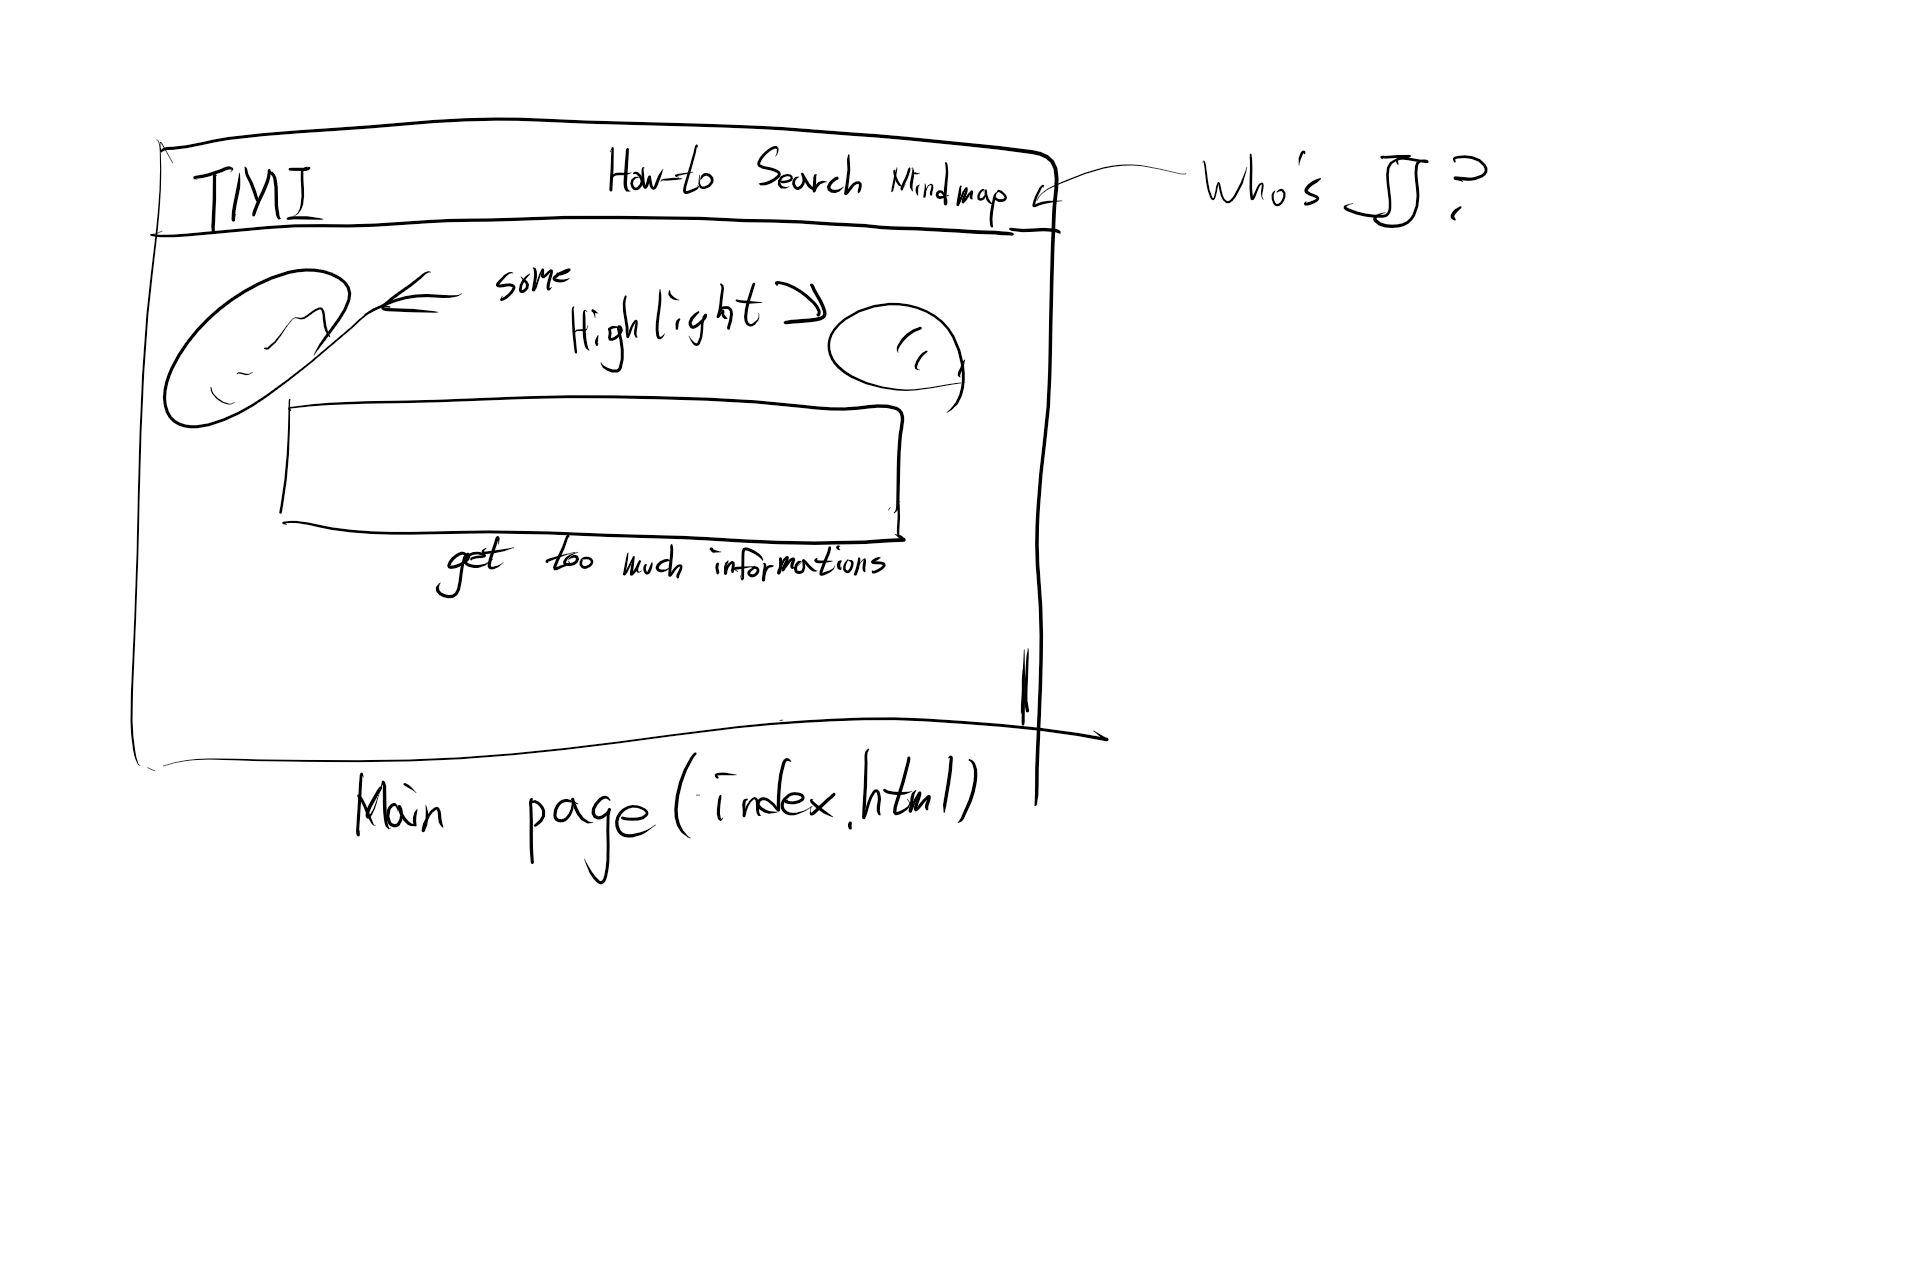 TMI
How-to Search Mindmap
Who's JJ?
some
Highlight
get too much informations
Main page (index.html)